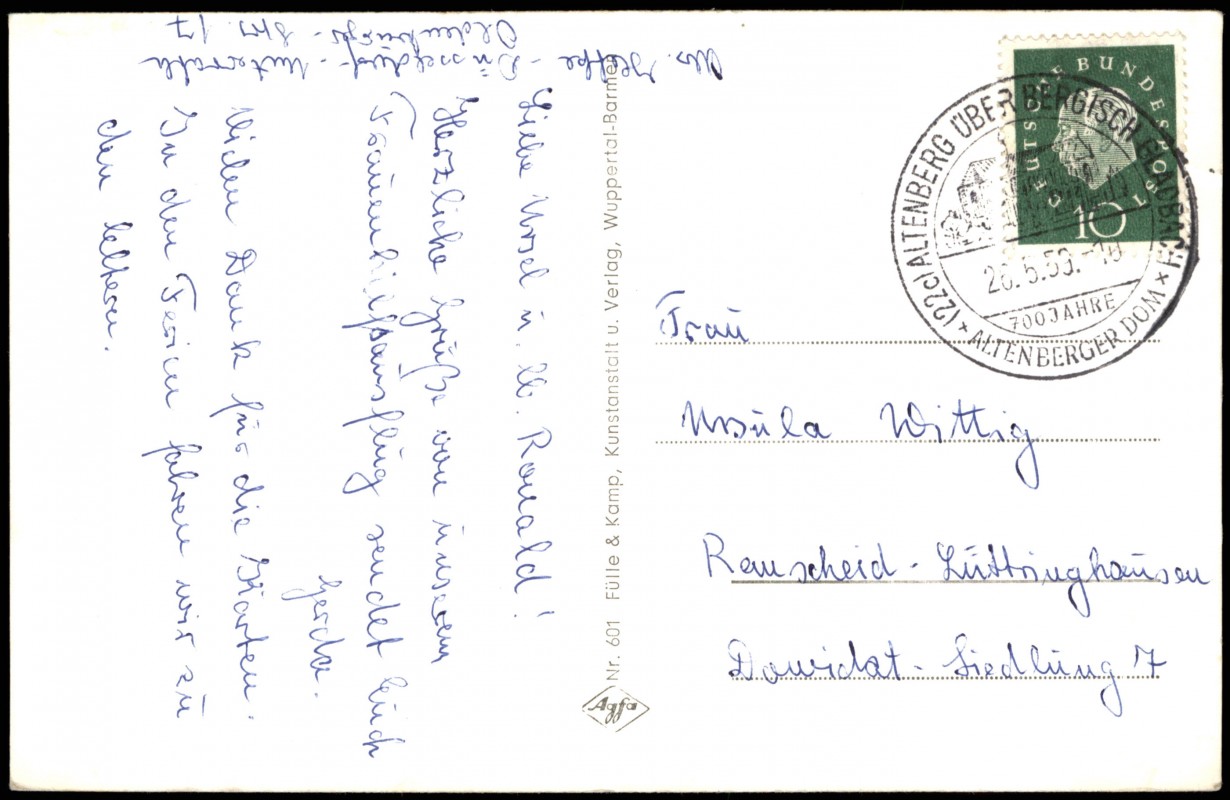 Liebe Ursel u. lb. Ronald!
Herzliche Grüße von unserem
Frauenhilfsausflug sendet Euch
Gerda.
Vielen Dank für die Karten.
In den Ferien fahren wir zu
den Eltern.
Düsseldorf - Unterrath
Str. 17
Nr. 601 Fülle & Kamp, Kunstanstalt u. Verlag, Wuppertal-Barmen
Agfa
DEUTSCHE BUNDESPOST
10
(22c) ALTENBERG ÜBER BERGISCH GLADBACH
26.5.59.-10
700 JAHRE
* ALTENBERGER DOM *
Frau
Ursula Wittig
Remscheid - Lüttringhausen
Dowidat - Siedlung 7